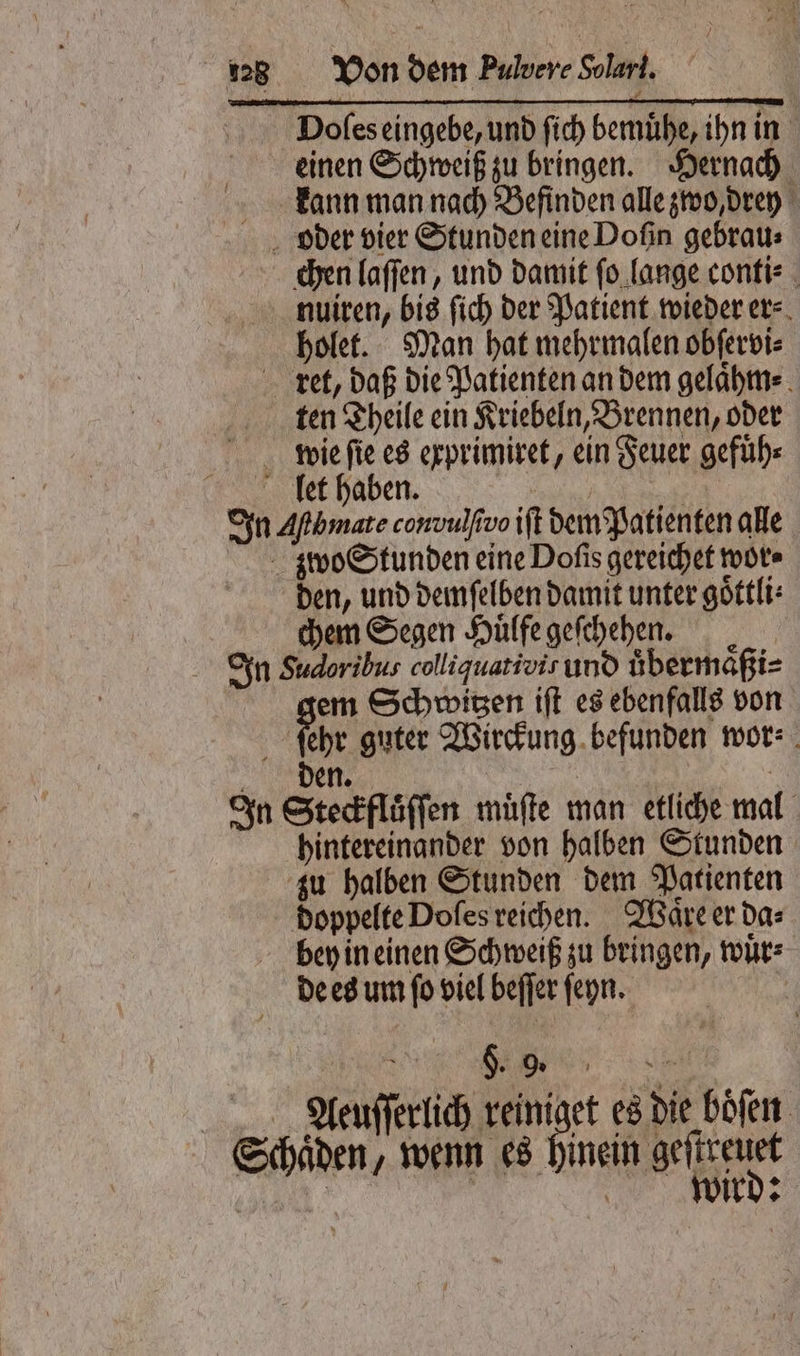 128 Von dem Pulvere Solari.
Doſes eingebe, und ſich bemuͤhe, ihn in
einen Schweiß zu bringen. Hernach
kann man nach Befinden alle zwo, drey
oder vier Stunden eine Doſin gebrau⸗
chen laſſen, und damit ſo lange conti⸗
nuiren, bis ſich der Patient wieder er⸗
holet. Man hat mehrmalen obſervi⸗
ret, daß die Patienten an dem gelaͤhm⸗
ten Theile ein Kriebeln, Brennen, oder
wie ſie es exprimiret, ein Feuer gefuͤh⸗
let haben.
In Aſthmate convulſivo iſt dem Patienten alle
zwo Stunden eine Doſis gereichet wor⸗
den, und demſelben damit unter goͤttli⸗
chem Segen Huͤlfe geſchehen.
In Sudoribus colliquativis und uͤbermaͤßi⸗
gem Schwitzen iſt es ebenfalls von
ſehr guter Wirckung befunden wor⸗
den.
In Steckfluͤſſen muͤſte man etliche mal
hintereinander von halben Stunden
zu halben Stunden dem Patienten
doppelte Doſes reichen. Waͤre er da⸗
bey in einen Schweiß zu bringen, wuͤr⸗
de es um ſo viel beſſer ſeyn.
§. 9.
Aeuſſerlich reiniget es die boͤſen
Schaͤden, wenn es hinein geſtreuet
wird: